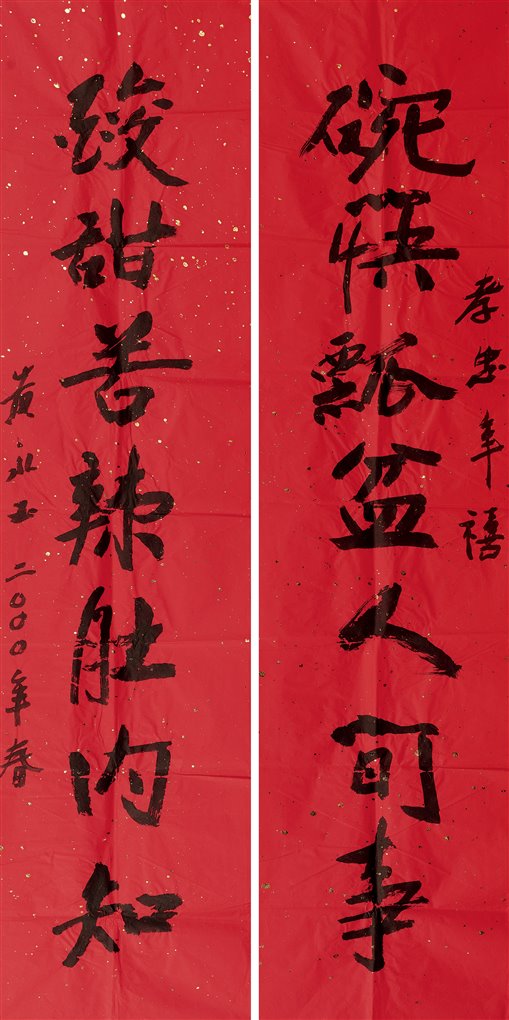 孝忠年禧
碗筷瓢盆人间事
酸甜苦辣肚内知
黄永玉 二〇〇〇年春